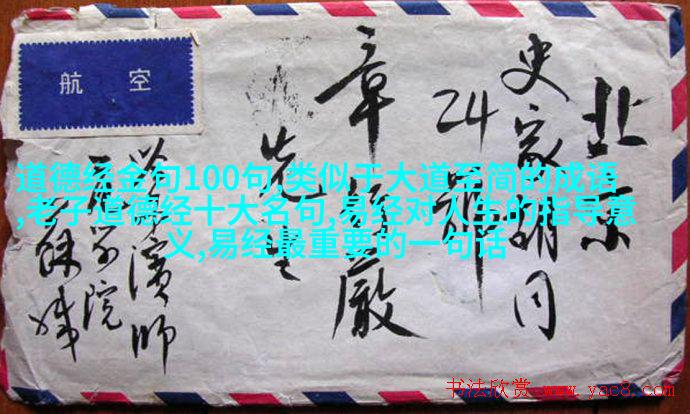 航空
北京
史家胡同
24
章 嚴
先生
濱师
学院
道德经金句100句,类似于大道至简的成语
,老子道德经十大名句,易经对人生的指导意
义,易经最重要的一句话
书法欣赏 www.yac8.com